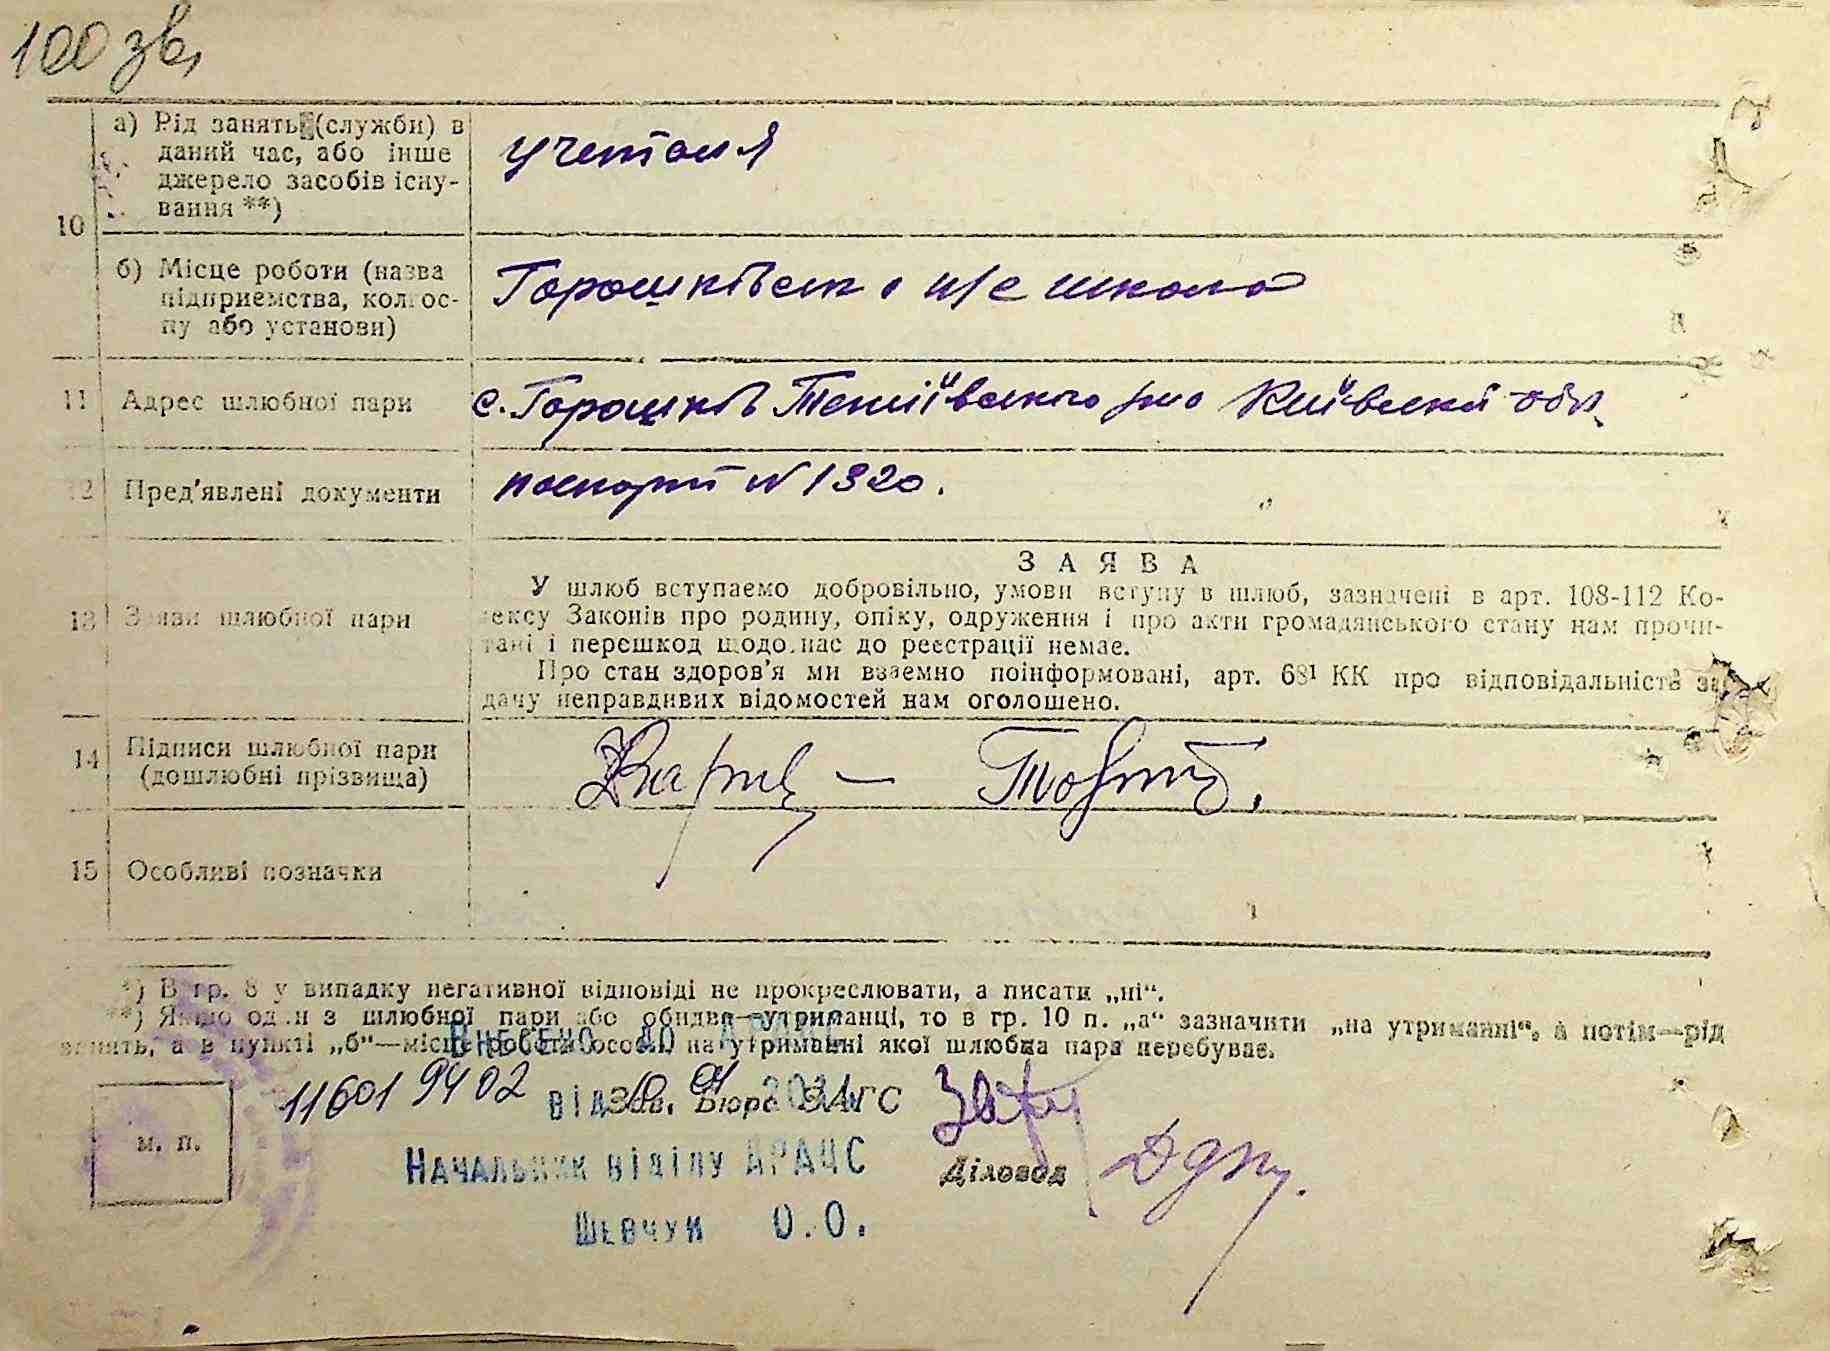 100 зв.
10
а) Рід занять (служби) в
даний час, або інше
джерело засобів існу-
вання **)
учителя
б) Місце роботи (назва
підприємства, колгос-
пу або установи)
Горошківськ н/с школа
11 Адрес шлюбної пари
с. Горошків Тетіївського р-но Київської обл.
12 Пред'явлені документи
паспорт N 1320.
13 Заяви шлюбної пари
ЗАЯВА
У шлюб вступаємо добровільно, умови вступу в шлюб, зазначені в арт. 108-112 Ко-
дексу Законів про родину, опіку, одруження і про акти громадянського стану нам прочи-
тані і перешкод щодо нас до реєстрації немає.
Про стан здоров'я ми взаємно поінформовані, арт. 68¹ КК про відповідальність за
дачу неправдивих відомостей нам оголошено.
14 Підписи шлюбної пари
(дошлюбні прізвища)
15 Особливі позначки
*) В гр. 8 у випадку негативної відповіді не прокреслювати, а писати „ні“.
**) Якщо один з шлюбної пари або обидва—утриманці, то в гр. 10 п. „а“ зазначити „на утриманні“, а потім—рід
занять, а в пункті „б“—місце роботи особи, на утриманні якої шлюбна пара перебуває.
Внесено до
11601 9402
від
Зав. Бюро ЗАГС
м. п.
Начальник відділу ДРАЦС
Діловод
Шевчук О.О.